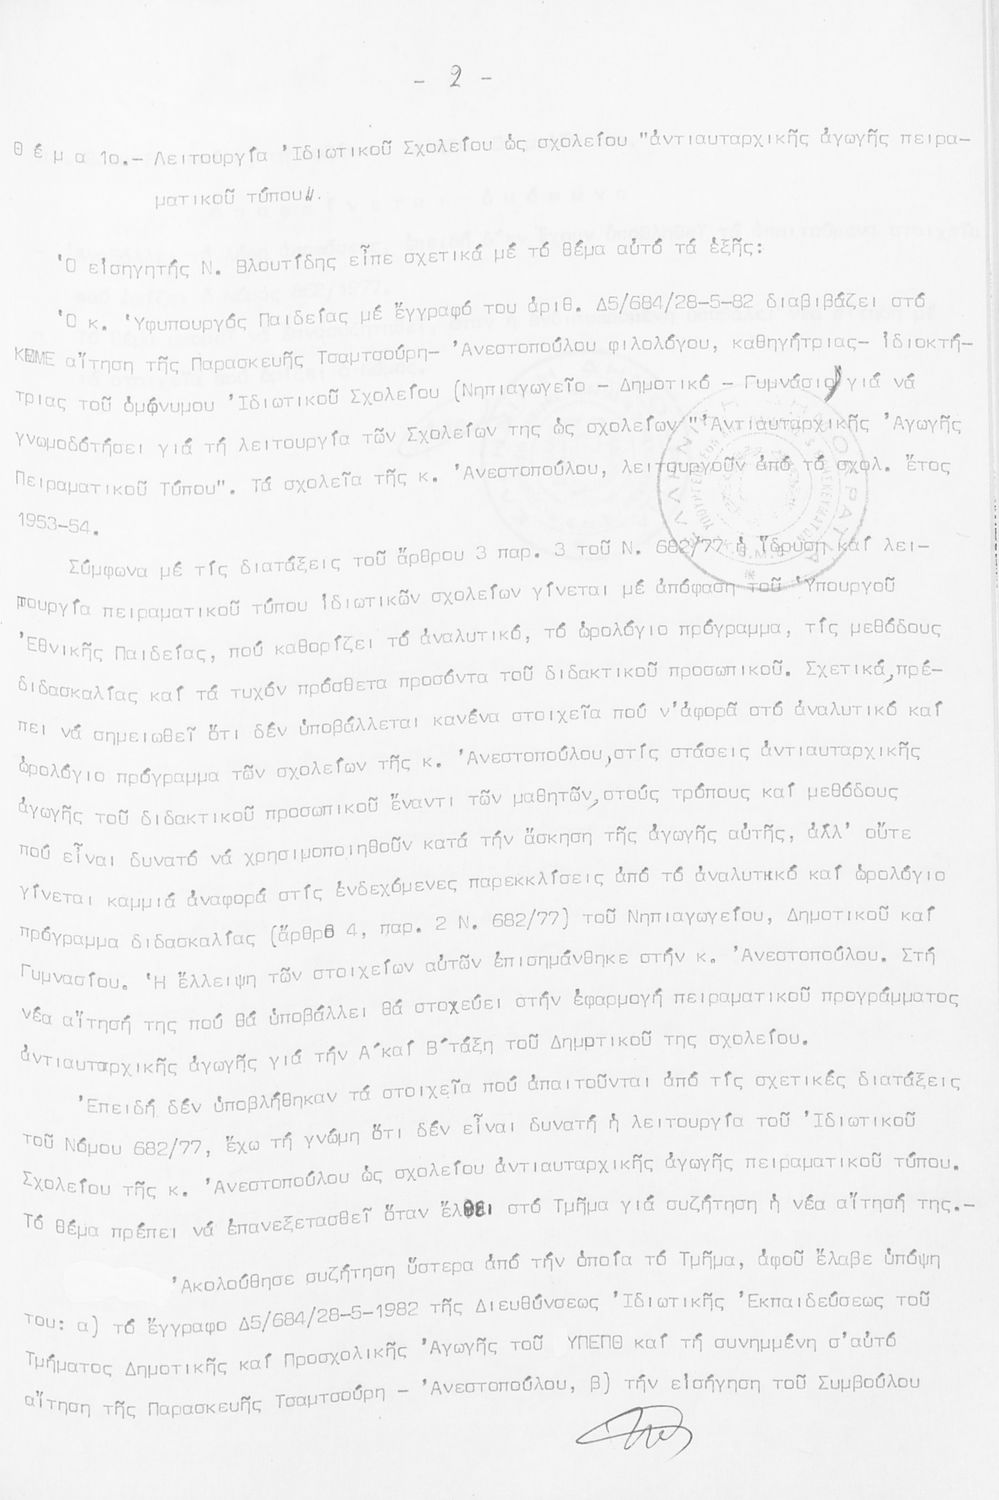 - 2 -
Θ έ μ α 1ο.- Λειτουργία Ἰδιωτικοῦ Σχολείου ὡς σχολείου "ἀντιαυταρχικῆς ἀγωγῆς πειρα-
ματικοῦ τύπου".
Ὁ εἰσηγητής Ν. Βλουτίδης εἶπε σχετικά μέ τό θέμα αὐτό τά ἑξῆς:
Ὁ κ. Ὑφυπουργός Παιδείας μέ ἔγγραφό του ἀριθ. Δ5/684/28-5-82 διαβιβάζει στό
ΚΕΜΕ αἴτηση τῆς Παρασκευῆς Τσαμτσούρη- Ἀνεστοπούλου φιλολόγου, καθηγήτριας- ἰδιοκτή-
τριας τοῦ ὁμώνυμου Ἰδιωτικοῦ Σχολείου (Νηπιαγωγεῖο - Δημοτικό - Γυμνάσιο) γιά νά
γνωμοδότήσει γιά τή λειτουργία τῶν Σχολείων της ὡς σχολείων "Ἀντιαυταρχικῆς Ἀγωγῆς
Πειραματικοῦ Τύπου". Τά σχολεῖα τῆς κ. Ἀνεστοπούλου, λειτουργοῦν ἀπό τό σχολ. ἔτος
1953-54.
Σύμφωνα μέ τίς διατάξεις τοῦ ἄρθρου 3 παρ. 3 τοῦ Ν. 682/77 ἡ ἵδρυση καί λει-
τουργία πειραματικοῦ τύπου ἰδιωτικῶν σχολείων γίνεται μέ ἀπόφαση τοῦ Ὑπουργοῦ
Ἐθνικῆς Παιδείας, πού καθορίζει τό ἀναλυτικό, τό ὡρολόγιο πρόγραμμα, τίς μεθόδους
διδασκαλίας καί τά τυχόν πρόσθετα προσόντα τοῦ διδακτικοῦ προσωπικοῦ. Σχετικά, πρέ-
πει νά σημειωθεῖ ὅτι δέν ὑποβάλλεται κανένα στοιχεῖα πού ν'ἀφορᾶ στό ἀναλυτικό καί
ὡρολόγιο πρόγραμμα τῶν σχολείων τῆς κ. Ἀνεστοπούλου, στίς στάσεις ἀντιαυταρχικῆς
ἀγωγῆς τοῦ διδακτικοῦ προσωπικοῦ ἔναντι τῶν μαθητῶν, στούς τρόπους καί μεθόδους
πού εἶναι δυνατό νά χρησιμοποιηθοῦν κατά τήν ἄσκηση τῆς ἀγωγῆς αὐτῆς, ἀλλ' οὔτε
γίνεται καμμιά ἀναφορά στίς ἐνδεχόμενες παρεκκλίσεις ἀπό τό ἀναλυτικό καί ὡρολόγιο
πρόγραμμα διδασκαλίας (ἄρθρο 4, παρ. 2 Ν. 682/77) τοῦ Νηπιαγωγείου, Δημοτικοῦ καί
Γυμνασίου. Ἡ ἔλλειψη τῶν στοιχείων αὐτῶν ἐπισημάνθηκε στήν κ. Ἀνεστοπούλου. Στή
νέα αἴτησή της πού θά ὑποβάλλει θά στοχεύει στήν ἐφαρμογή πειραματικοῦ προγράμματος
ἀντιαυταρχικῆς ἀγωγῆς γιά τήν Α΄καί Β΄τάξη τοῦ Δημοτικοῦ της σχολείου.
Ἐπειδή δέν ὑποβλήθηκαν τά στοιχεῖα πού ἀπαιτοῦνται ἀπό τίς σχετικές διατάξεις
τοῦ Νόμου 682/77, ἔχω τή γνώμη ὅτι δέν εἶναι δυνατή ἡ λειτουργία τοῦ Ἰδιωτικοῦ
Σχολείου τῆς κ. Ἀνεστοπούλου ὡς σχολείου ἀντιαυταρχικῆς ἀγωγῆς πειραματικοῦ τύπου.
Τό θέμα πρέπει νά ἐπανεξετασθεῖ ὅταν ἔλθει στό Τμῆμα γιά συζήτηση ἡ νέα αἴτησή της.-
Ἀκολούθησε συζήτηση ὕστερα ἀπό τήν ὁποία τό Τμῆμα, ἀφοῦ ἔλαβε ὑπόψη
του: α) τό ἔγγραφο Δ5/684/28-5-1982 τῆς Διευθύνσεως Ἰδιωτικῆς Ἐκπαιδεύσεως τοῦ
Τμήματος Δημοτικῆς καί Προσχολικῆς Ἀγωγῆς τοῦ ΥΠΕΠΘ καί τή συνημμένη σ'αὐτό
αἴτηση τῆς Παρασκευῆς Τσαμτσούρη - Ἀνεστοπούλου, β) τήν εἰσήγηση τοῦ Συμβούλου